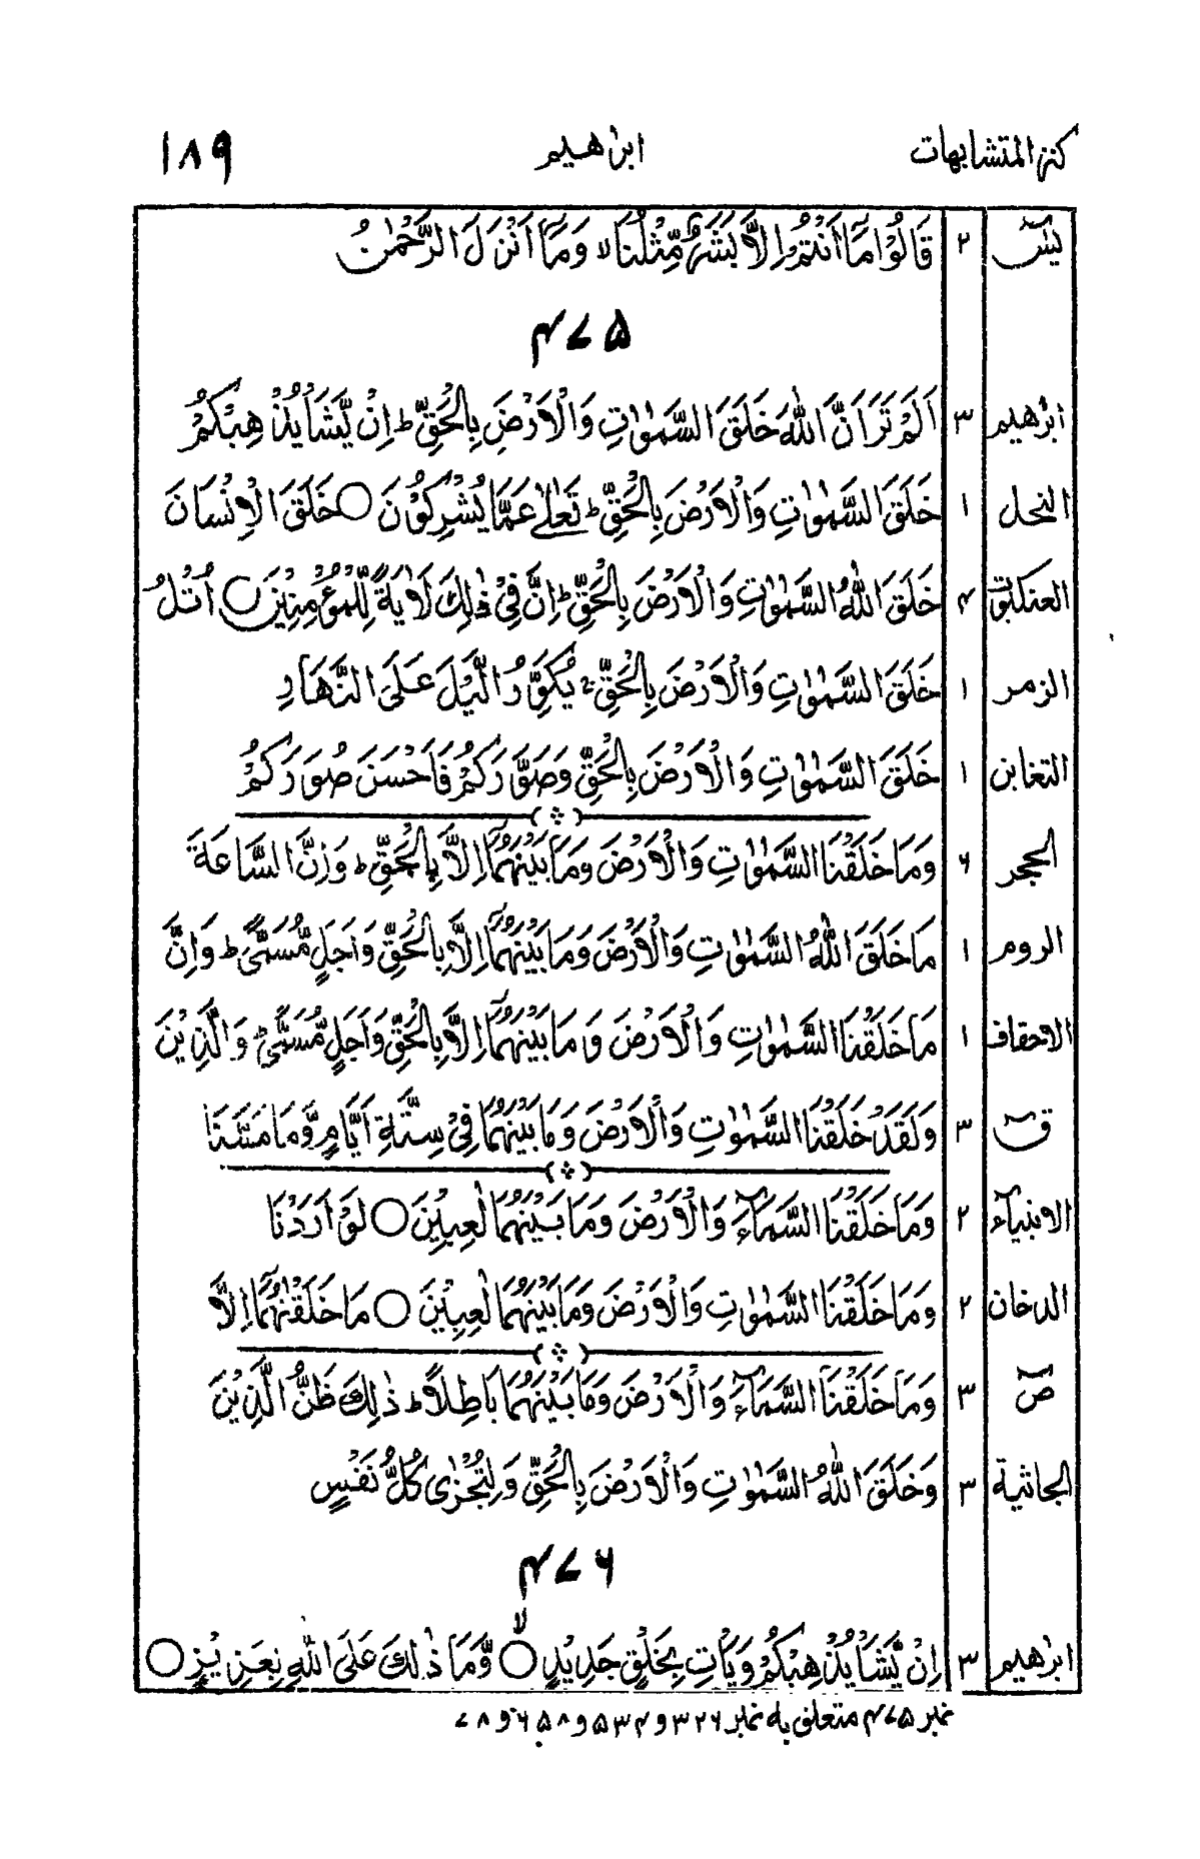 كنز المتشابهات ابرٰهيم ١٨٩
يٰسٓ ٢ قَالُوْا مَآ اَنْتُمْ اِلَّا بَشَرٌ مِّثْلُنَا ۙ وَمَآ اَنْزَلَ الرَّحْمٰنُ
۴۷۵
ابرٰهيم ٣ اَلَمْ تَرَ اَنَّ اللّٰهَ خَلَقَ السَّمٰوٰتِ وَالْاَرْضَ بِالْحَقِّ ؕ اِنْ يَّشَاْ يُذْهِبْكُمْ
النحل ١ خَلَقَ السَّمٰوٰتِ وَالْاَرْضَ بِالْحَقِّ ؕ تَعٰلٰى عَمَّا يُشْرِكُوْنَ ○ خَلَقَ الْاِنْسَانَ
العنكبوت ۴ خَلَقَ اللّٰهُ السَّمٰوٰتِ وَالْاَرْضَ بِالْحَقِّ ؕ اِنَّ فِىْ ذٰلِكَ لَاٰيَةً لِّلْمُؤْمِنِيْنَ ○ اُتْلُ
الزمر ١ خَلَقَ السَّمٰوٰتِ وَالْاَرْضَ بِالْحَقِّ ۚ يُكَوِّرُ الَّيْلَ عَلَى النَّهَارِ
التغابن ١ خَلَقَ السَّمٰوٰتِ وَالْاَرْضَ بِالْحَقِّ وَصَوَّرَكُمْ فَاَحْسَنَ صُوَرَكُمْ
الحجر ۶ وَمَا خَلَقْنَا السَّمٰوٰتِ وَالْاَرْضَ وَمَا بَيْنَهُمَآ اِلَّا بِالْحَقِّ ؕ وَاِنَّ السَّاعَةَ
الروم ١ مَا خَلَقَ اللّٰهُ السَّمٰوٰتِ وَالْاَرْضَ وَمَا بَيْنَهُمَآ اِلَّا بِالْحَقِّ وَاَجَلٍ مُّسَمًّى ؕ وَاِنَّ
الاحقاف ١ مَا خَلَقْنَا السَّمٰوٰتِ وَالْاَرْضَ وَمَا بَيْنَهُمَآ اِلَّا بِالْحَقِّ وَاَجَلٍ مُّسَمًّى ؕ وَالَّذِيْنَ
قٓ ٣ وَلَقَدْ خَلَقْنَا السَّمٰوٰتِ وَالْاَرْضَ وَمَا بَيْنَهُمَا فِىْ سِتَّةِ اَيَّامٍ وَّمَا مَسَّنَا
الانبيآء ٢ وَمَا خَلَقْنَا السَّمَآءَ وَالْاَرْضَ وَمَا بَيْنَهُمَا لٰعِبِيْنَ ○ لَوْ اَرَدْنَا
الدخان ٢ وَمَا خَلَقْنَا السَّمٰوٰتِ وَالْاَرْضَ وَمَا بَيْنَهُمَا لٰعِبِيْنَ ○ مَا خَلَقْنٰهُمَآ اِلَّا
صٓ ٣ وَمَا خَلَقْنَا السَّمَآءَ وَالْاَرْضَ وَمَا بَيْنَهُمَا بَاطِلًا ؕ ذٰلِكَ ظَنُّ الَّذِيْنَ
الجاثية ٣ وَخَلَقَ اللّٰهُ السَّمٰوٰتِ وَالْاَرْضَ بِالْحَقِّ وَلِتُجْزٰى كُلُّ نَفْسٍ
۴۷۶
ابرٰهيم ٣ اِنْ يَّشَاْ يُذْهِبْكُمْ وَيَاْتِ بِخَلْقٍ جَدِيْدٍ ○ۙ وَّمَا ذٰلِكَ عَلَى اللّٰهِ بِعَزِيْزٍ ○
نمبر ۴۷۵ متعلق به نمبر ٣٢٦ و ۵٣۴ و ۶۵٨ و ٧٨۶